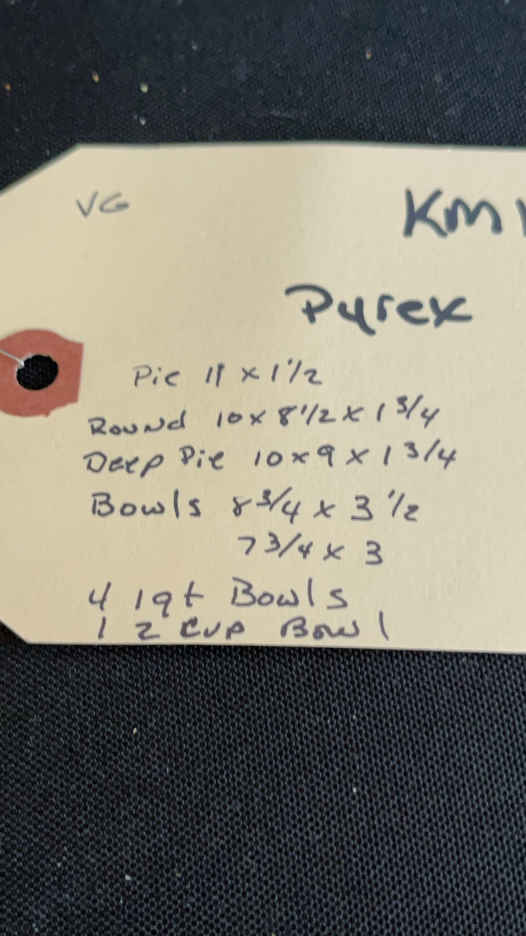 VG
KM
Pyrex
Pie 11 x 1 1/2
Round 10 x 8 1/2 x 1 3/4
Deep Pie 10 x 9 x 1 3/4
Bowls 8 3/4 x 3 1/2
7 3/4 x 3
4 1qt Bowls
1 2 cup Bowl